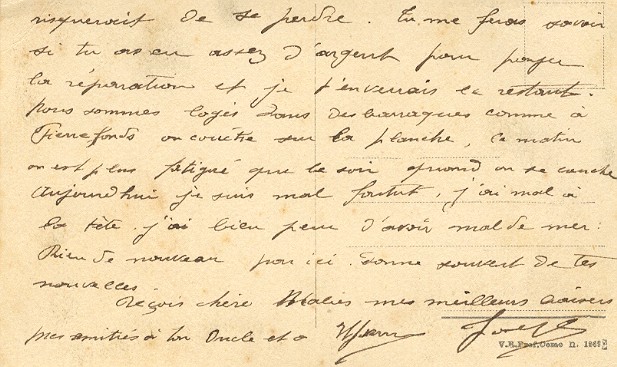 risquerait de se perdre. Tu me feras savoir
si tu as eu assez d'argent pour payer
la réparation et je t'enverrais le restant.
Nous sommes logés dans des barraques comme à
Pierrefonds on couche sur la planche, ce matin
on est plus fatigué que le soir quand on se couche
Aujourd'hui je suis mal foutut, j'ai mal à
la tête. j'ai bien peur d'avoir mal de mer.
Rien de nouveau par ici. Donne souvent de tes
nouvelles
Reçois chère mes meilleurs baisers
mes amitiés à ton Oncle et a Joseph
V.E.Prof.Cosmo n.